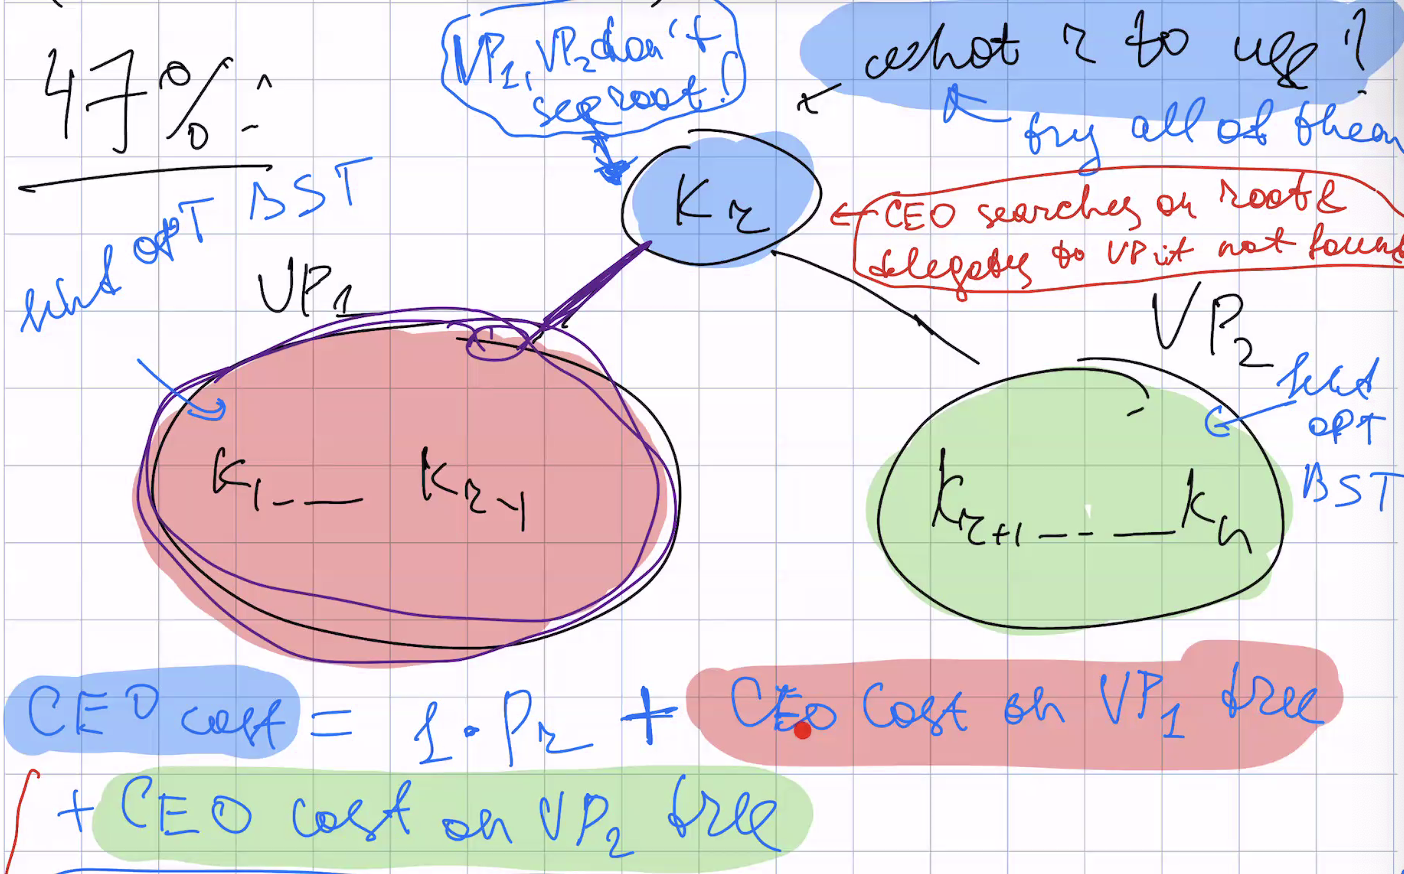 47% :
VP1, VP2 don't
see root!
what r to use?
try all of them
Kr
CEO searches on root &
delegates to VP if not found
find OPT BST
VP1
VP2
find
OPT
BST
K1 -- Kr-1
Kr+1 --- Kn
CEO cost = 1·Pr + CEO cost on VP1 tree
+ CEO cost on VP2 tree